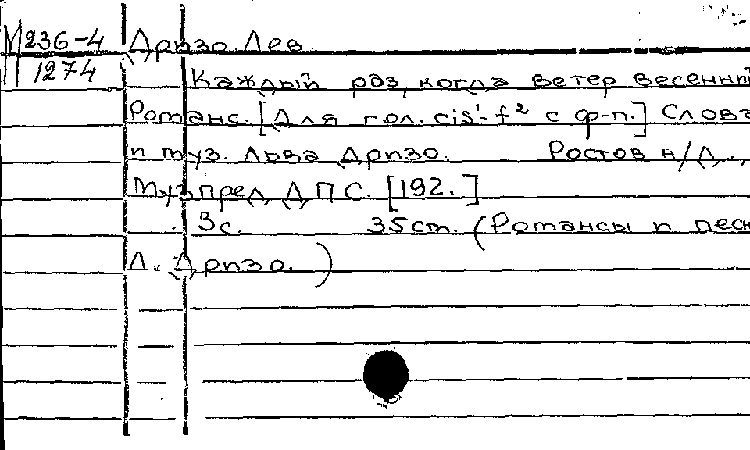 М 236-4 Дризо Лев
1274 Каждый раз, когда ветер весенний
Романс. [Для гол. cis¹-f² с ф-п.] Слова
и муз. Льва Дризо. Ростов н/Д.,
Музпред ДПС. [192. ]
3с. 35cm. (Романсы и песн
Л. Дризо. )